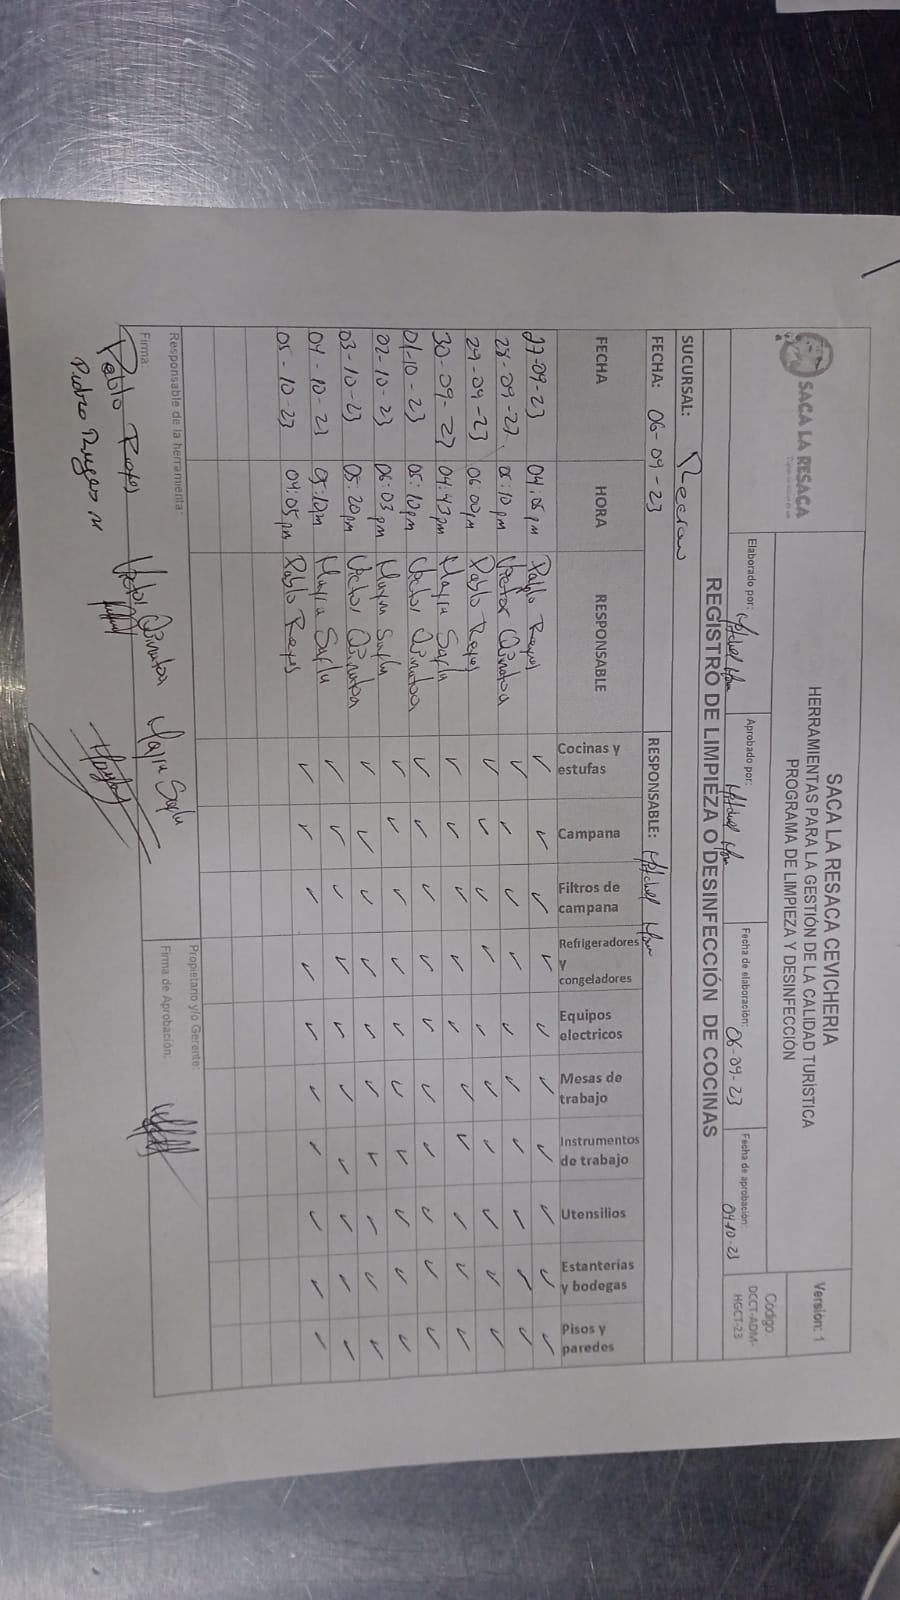 SACA LA RESACA
SACA LA RESACA CEVICHERIA
HERRAMIENTAS PARA LA GESTIÓN DE LA CALIDAD TURÍSTICA
PROGRAMA DE LIMPIEZA Y DESINFECCIÓN
Versión: 1
Elaborado por:
Aprobado por:
Fecha de elaboración: 06-09-23
Fecha de aprobación: 04-10-23
Código:
DCCT-ADM-
HGCT-23
REGISTRO DE LIMPIEZA O DESINFECCIÓN DE COCINAS
SUCURSAL:
FECHA: 06-09-23 RESPONSABLE:
FECHA HORA RESPONSABLE Cocinas y estufas Campana Filtros de campana Refrigeradores y congeladores Equipos electricos Mesas de trabajo Instrumentos de trabajo Utensilios Estanterías y bodegas Pisos y paredes
27-09-23 04:05 pm Pablo Reyes ✓ ✓ ✓ ✓ ✓ ✓ ✓ ✓ ✓ ✓
28-09-23 05:10 pm Victor Quinatoa ✓ ✓ ✓ ✓ ✓ ✓ ✓ ✓ ✓ ✓
29-09-23 06:00 pm Pablo Reyes ✓ ✓ ✓ ✓ ✓ ✓ ✓ ✓ ✓ ✓
30-09-23 04:43 pm Mayra ✓ ✓ ✓ ✓ ✓ ✓ ✓ ✓ ✓ ✓
01-10-23 05:10 pm Victor Quinatoa ✓ ✓ ✓ ✓ ✓ ✓ ✓ ✓ ✓ ✓
02-10-23 06:03 pm Mayra ✓ ✓ ✓ ✓ ✓ ✓ ✓ ✓ ✓ ✓
03-10-23 05:20 pm Victor Quinatoa ✓ ✓ ✓ ✓ ✓ ✓ ✓ ✓ ✓ ✓
04-10-23 05:10 pm Mayra ✓ ✓ ✓ ✓ ✓ ✓ ✓ ✓ ✓ ✓
05-10-23 04:05 pm Pablo Reyes ✓ ✓ ✓ ✓ ✓ ✓ ✓ ✓ ✓ ✓
Responsable de la herramienta: Propietario y/ó Gerente:
Firma: Firma de Aprobación:
Pablo Reyes Victor Quinatoa Mayra